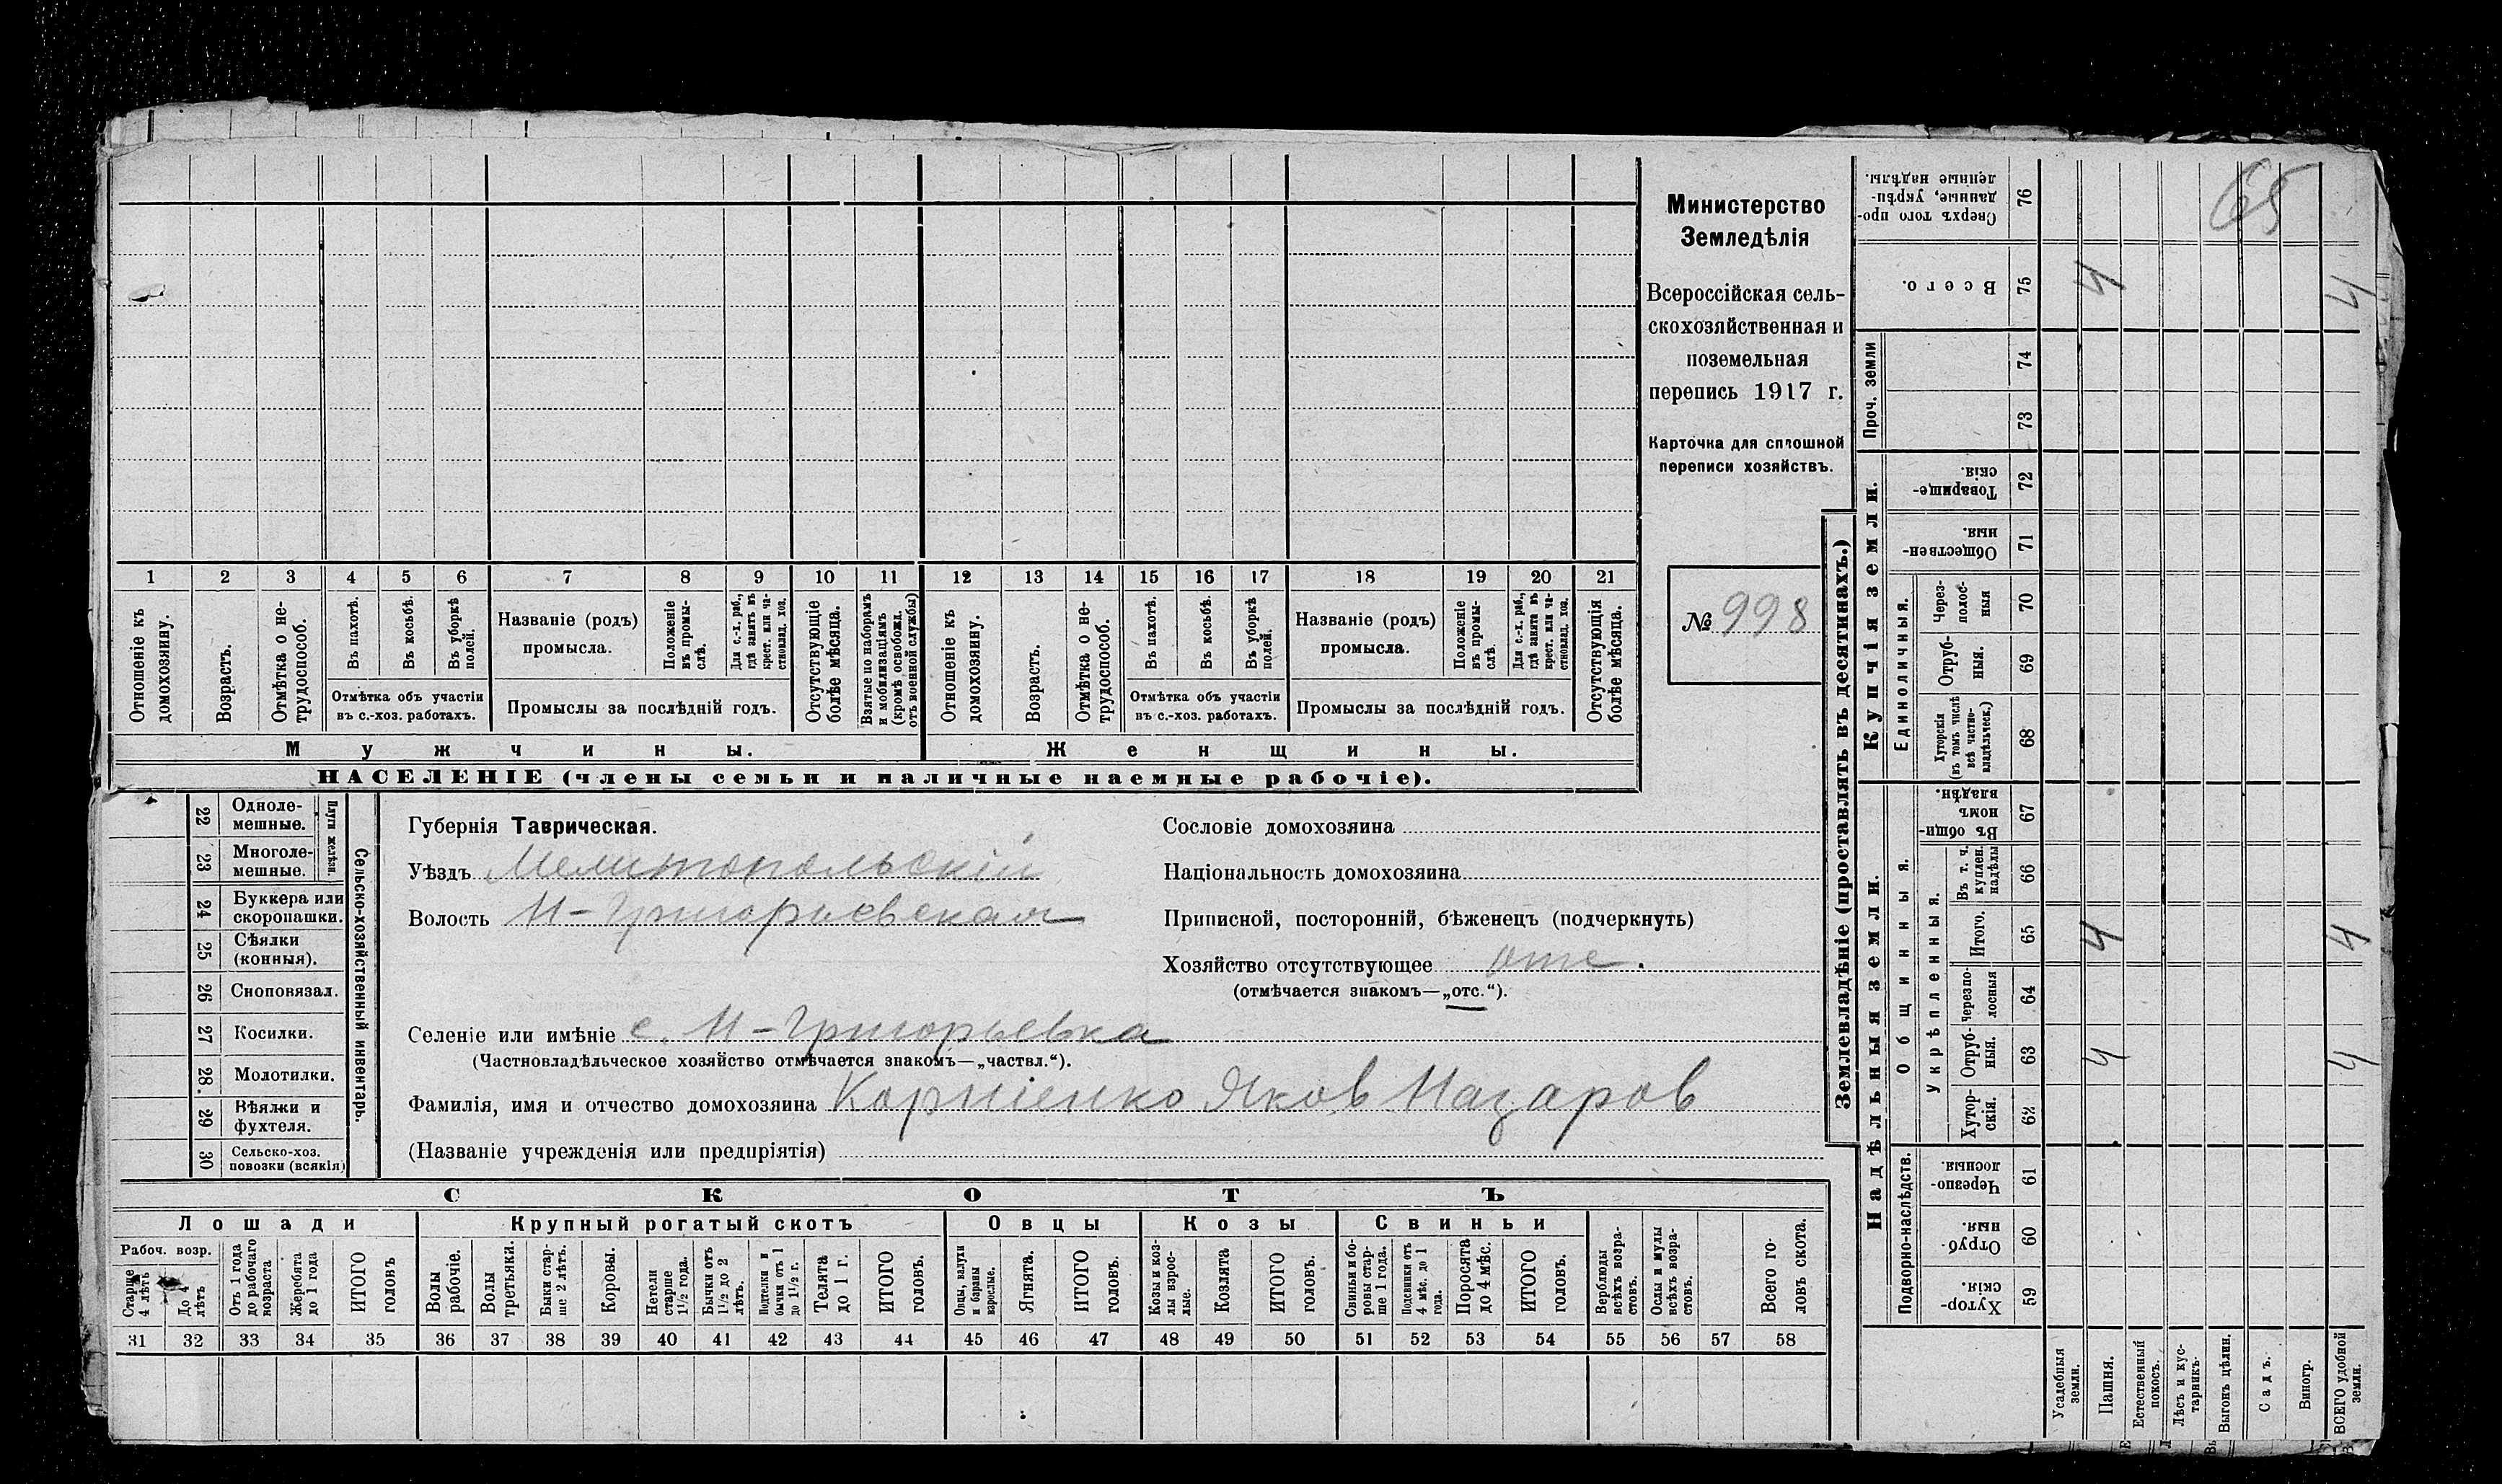 65
Министерство
Земледѣлія
Всероссійская сель-
скохозяйственная и
поземельная
перепись 1917 г.
Карточка для сплошной
переписи хозяйствъ.
№ 998
1 2 3 4 5 6 7 8 9 10 11 12 13 14 15 16 17 18 19 20 21
Отношеніе къ домохозяину.
Возрастъ.
Отмѣтка о не-трудоспособ.
Въ пахотѣ.
Въ косьбѣ.
Въ уборкѣ полей.
Отмѣтка объ участіи
въ с.-хоз. работахъ.
Названіе (родъ)
промысла.
Положеніе въ промы-слѣ.
Для с.-х. раб., гдѣ занятъ въ крест. или ча-стновлад. хоз.
Промыслы за послѣдній годъ.
Отсутствующіе болѣе мѣсяца.
Взятые по наборамъ и мобилизаціямъ (кромѣ освобожд. отъ военной службы)
Отношеніе къ домохозяину.
Возрастъ.
Отмѣтка о не-трудоспособ.
Въ пахотѣ.
Въ косьбѣ.
Въ уборкѣ полей.
Отмѣтка объ участіи
въ с.-хоз. работахъ.
Названіе (родъ)
промысла.
Положеніе въ промы-слѣ.
Для с.-х. раб., гдѣ занята въ крест. или ча-стновлад. хоз.
Промыслы за послѣдній годъ.
Отсутствующія болѣе мѣсяца.
Мужчины.
Женщины.
НАСЕЛЕНІЕ (члены семьи и наличные наемные рабочіе).
22 Одноле-мешные.
23 Многоле-мешные.
Плуги желѣзн.
24 Буккера или скоропашки.
25 Сѣялки (конныя).
26 Сноповязал.
27 Косилки.
28. Молотилки.
29 Вѣялки и фухтеля.
30 Сельско-хоз. повозки (всякія)
Сельско-хозяйственный инвентарь.
Губернія Таврическая.
Уѣздъ Мелитопольскій
Волость Н-Григорьевская
Селеніе или имѣніе с. Н-Григорьевка
(Частновладѣльческое хозяйство отмѣчается знакомъ—„частвл.“).
Фамилія, имя и отчество домохозяина Корніенко Яков Назаров
(Названіе учрежденія или предпріятія)
Сословіе домохозяина
Національность домохозяина
Приписной, посторонній, бѣженецъ (подчеркнуть)
Хозяйство отсутствующее отс.
(отмѣчается знакомъ—„отс.“).
СКОТЪ
Лошади
Крупный рогатый скотъ
Овцы
Козы
Свиньи
Рабоч. возр.
Старше 4 лѣтъ
До 4 лѣтъ
Отъ 1 года до рабочаго возраста
Жеребята до 1 года
ИТОГО головъ
Волы рабочіе.
Волы третьяки.
Быки стар-ше 2 лѣтъ.
Коровы.
Нетели старше 1½ года.
Бычки отъ 1½ до 2 лѣтъ.
Подтелки и бычки отъ 1 до 1½ г.
Телята до 1 г.
ИТОГО головъ.
Овцы, валухи и бараны взрослые.
Ягнята.
ИТОГО головъ.
Козы и коз-лы взрос-лые.
Козлята
ИТОГО головъ.
Свиньи и бо-ровы стар-ше 1 года.
Подсвинки отъ 4 мѣс. до 1 года.
Поросята до 4 мѣс.
ИТОГО головъ.
Верблюды всѣхъ возра-стовъ.
Ослы и мулы всѣхъ возра-стовъ.
Всего го-ловъ скота.
31 32 33 34 35 36 37 38 39 40 41 42 43 44 45 46 47 48 49 50 51 52 53 54 55 56 57 58
Землевладѣніе (проставлять въ десятинахъ.)
Надѣльныя земли.
Подворно-наслѣдств.
Хутор-скія. 59
Отруб-ныя. 60
Черезпо-лосныя. 61
Общинныя.
Укрѣпленныя.
Хутор-скія. 62
Отруб-ныя. 63 4 4
Черезпо-лосныя 64
Итого. 65 4 4
Въ т. ч. куплен. надѣлы 66
Въ общин-номъ владѣн. 67
Купчія земли.
Единоличныя.
Хуторскія (въ томъ числѣ всѣ частно-владѣльческ.) 68
Отруб-ныя. 69
Через-полос-ныя 70
Обществен-ныя. 71
Товарище-скія. 72
Проч. земли
73
74
Всего. 75 4 4
Сверхъ того про-данные, укрѣп-ленные надѣлы. 76
Усадебныя земли.
Пашня.
Естественный покосъ.
Лѣсъ и кус-тарникъ.
Выгонъ цѣлин.
Садъ.
Виногр.
ВСЕГО удобной земли.